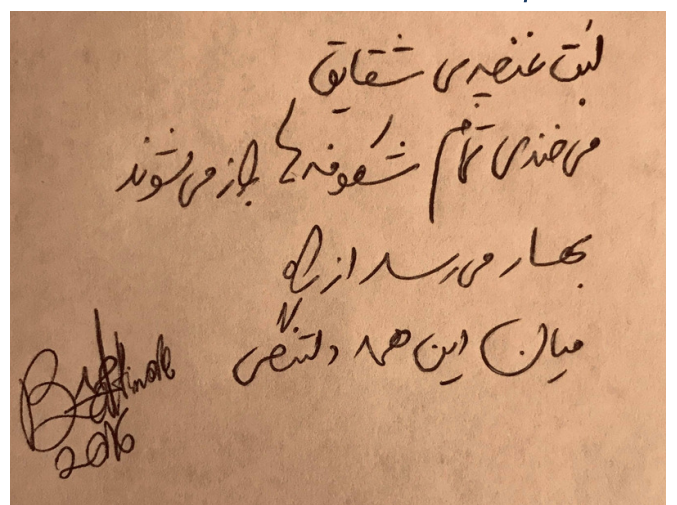 لبت غنچه‌ی شقایق
می‌خندی تمام شکوفه‌ها باز می‌شوند
بهار می‌رسد از راه
میان این همه دلتنگی
2016